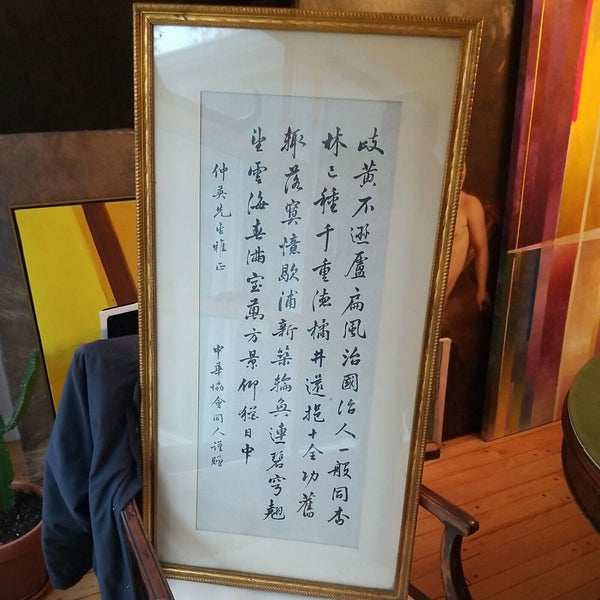 歧黃不遜盧扁風治國治人一般同杏
林已種千重德橘井還挹十全功舊
輒落寞憶歇浦新築輪奐連碧穹翹
望雲海春滿室萬方景仰猶日中
仲英先生雅正
中華協會同人謹贈